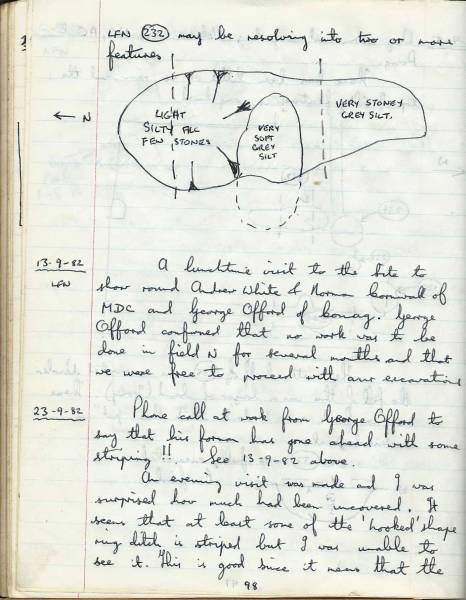 LFN 232 may be resolving into two or more
features
← N
LIGHT
SILTY ALL
FEW STONES
VERY
SOFT
GREY
SILT
VERY STONEY
GREY SILT.
13-9-82
LFN
A lunchtime visit to the site to
show round Andrew White & Norman Cornwall of
MDC and George Offord of Conway. George
Offord confirmed that no work was to be
done in field N for several months and that
we were free to proceed with our excavations
23-9-82
Phone call at work from George Offord to
say that his forman has gone ahead with some
striping!! See 13-9-82 above.
An evening visit was made and I was
surprised how much had been uncovered. It
seems that at least some of the 'hooked' shape
ring ditch is striped but I was unable to
see it. This is good since it means that the
98